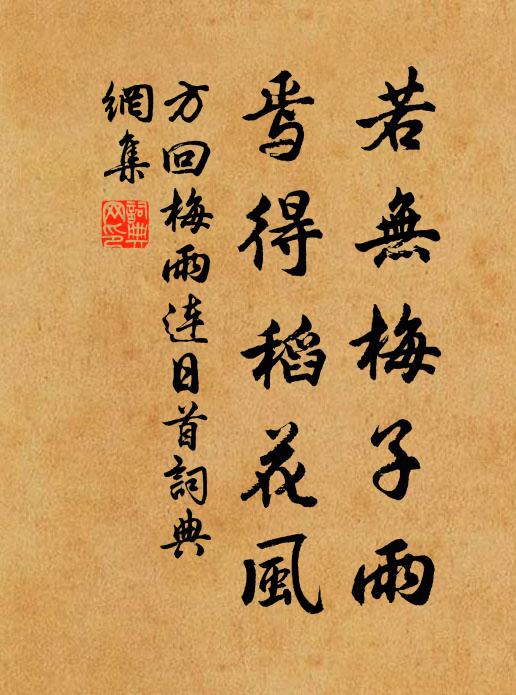 若無梅子雨
焉得稻花風
方回梅雨连日首詞典
網集
詞典
网印